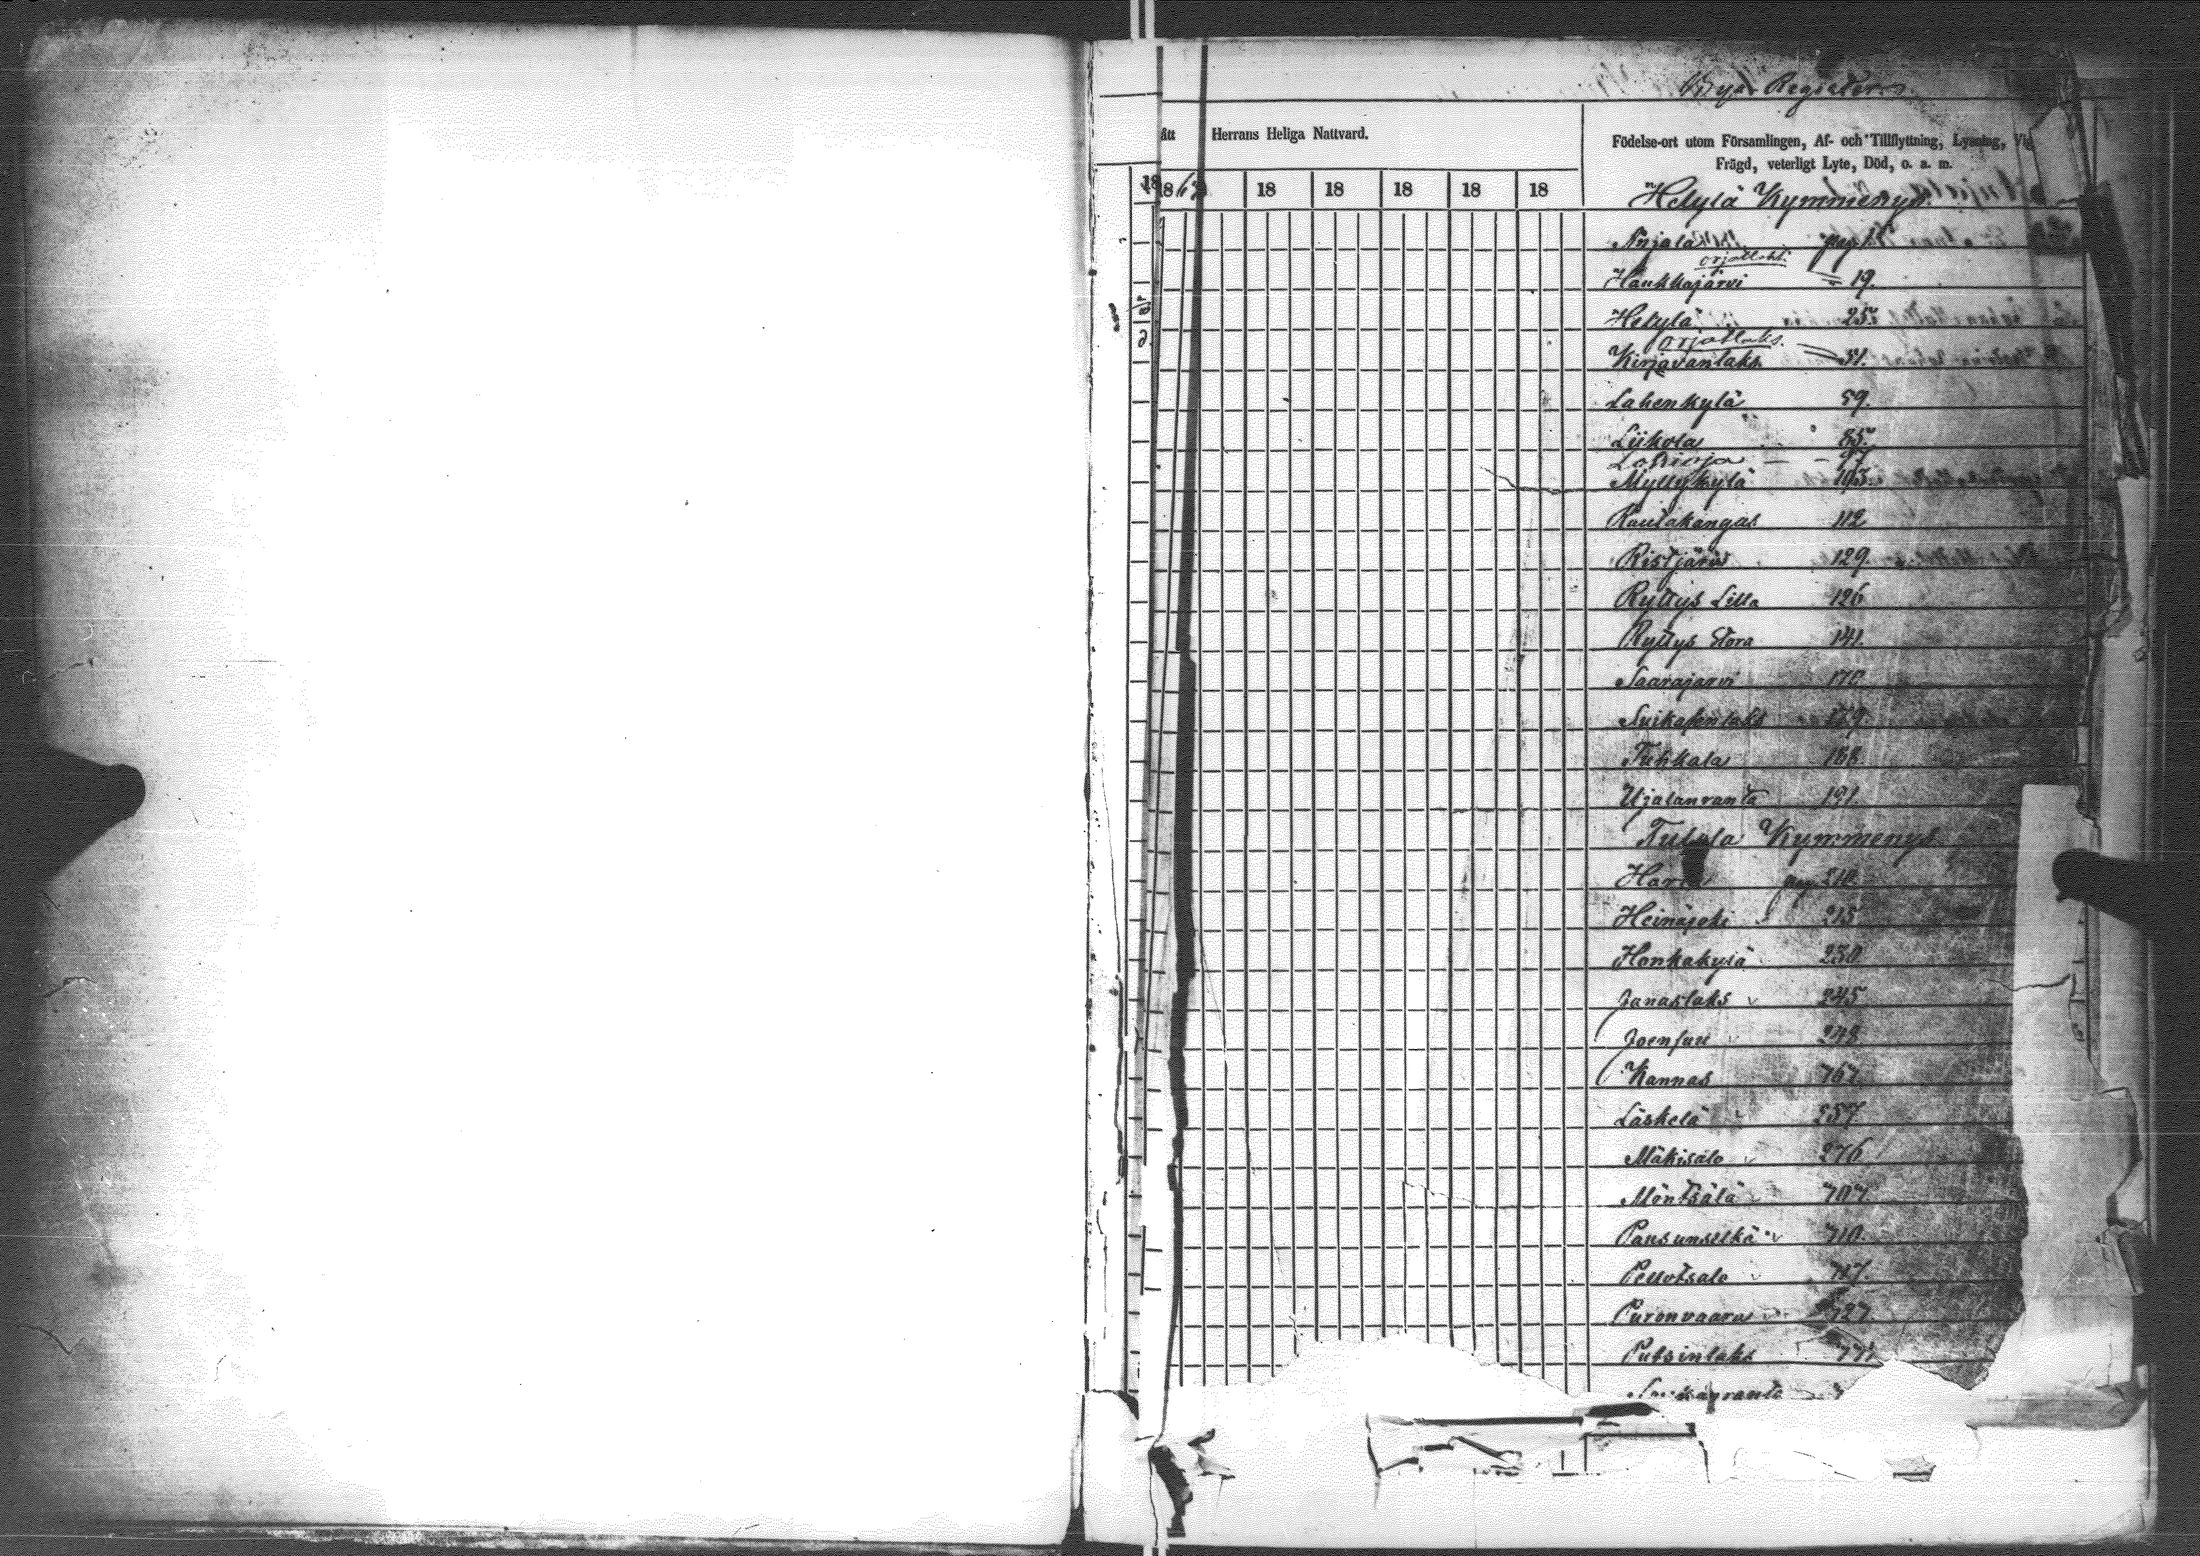 Bya Register
ått Herrans Heliga Nattvard.
Födelse-ort utom Församlingen, Af- och Tillflyttning, Lysning, Vig
Frägd, veterligt Lyte, Död, o. a. m.
18 1863 18 18 18 18 18
Helylä Kymmenys
Anjala pag
orjatlahti
Haukkajärvi 19.
Helylä 25.
orjatlaks
Kirjavanlaks 51.
Lahenkylä 59.
Liikola 85.
97
Myllykylä 103.
Rautakangas 112
Ristjärvi 129.
Ryttys Lilla 126
Ryttys Stora 141.
Saarajärvi
Suikalenlaks 159.
Tuhkala 188.
Ujalanranta 191.
Kymmenys
pag. 210.
Heinäjoki 215
Honkakylä 230
Janaslaks 245
Joensuu 248
Kannas 767
Läskelä 257.
Mäkisalo 276
Möntsälä 707.
Pausunselkä 710.
Pellotsalo 717.
Puronvaara 727.
Putsinlaks